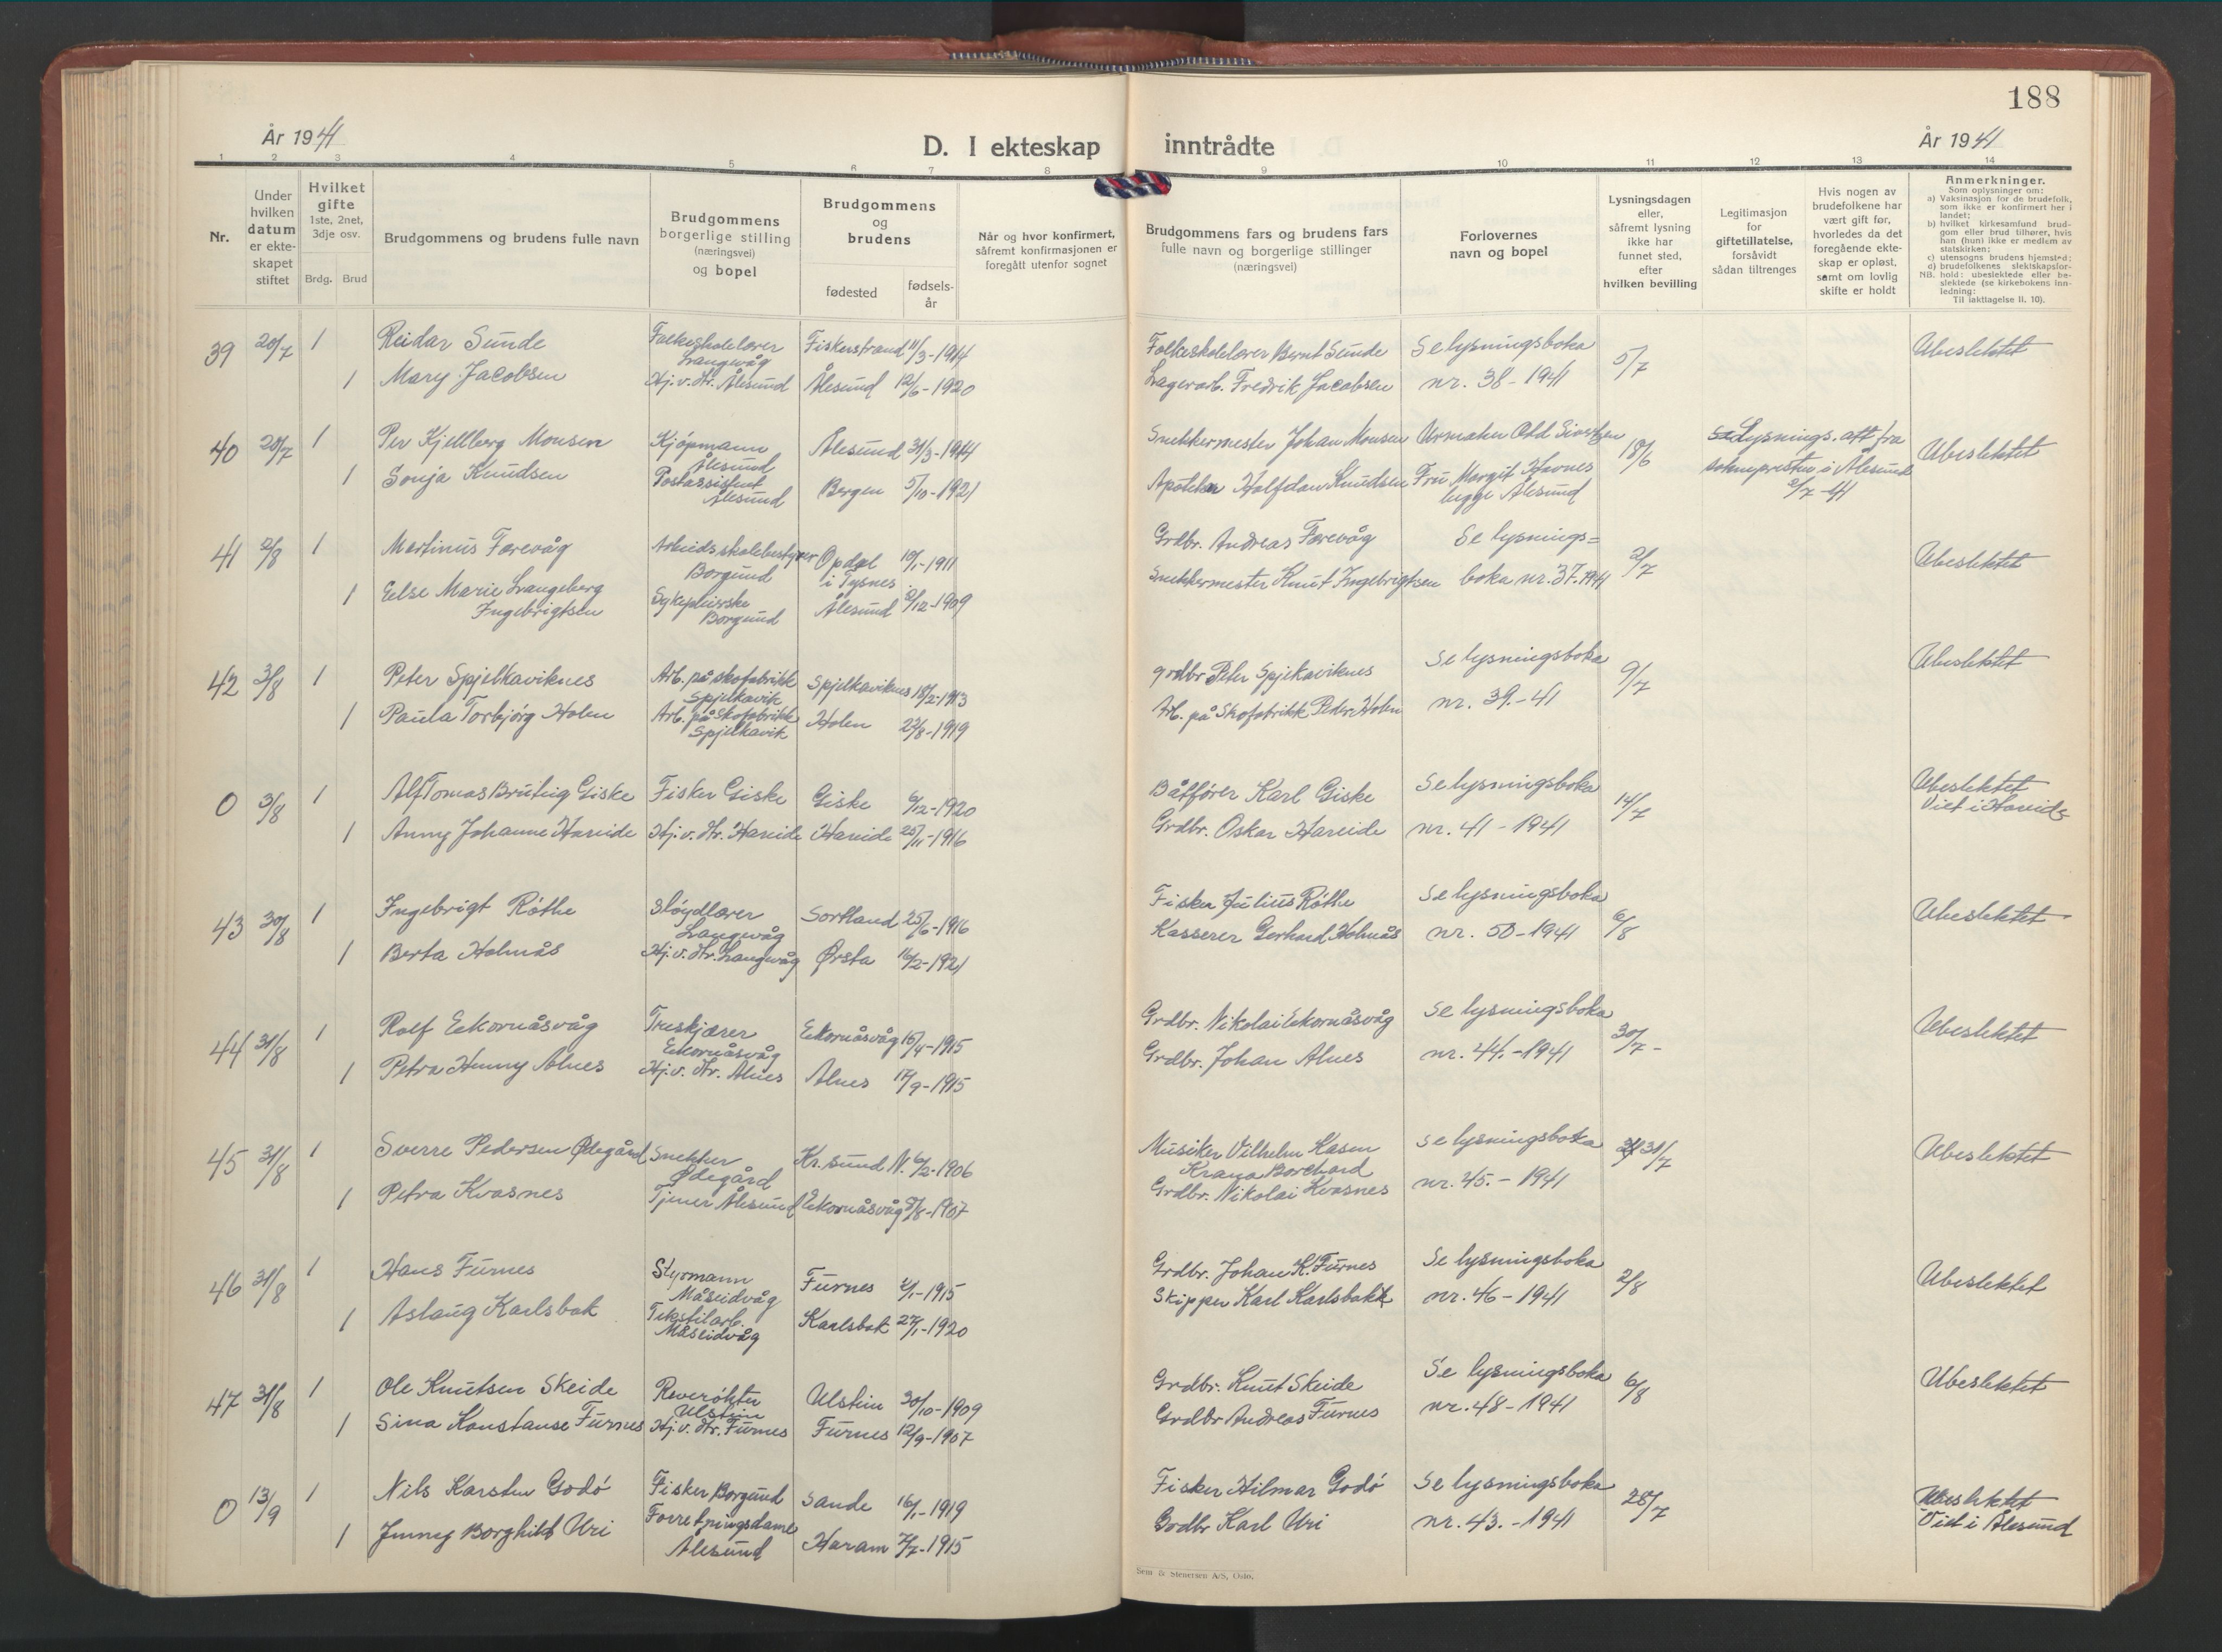 188
År 1941
D. I ekteskap inntrådte
År 1941
1 2 3 4 5 6 7 8 9 10 11 12 13 14
Nr.
Under hvilken datum er ekteskapet stiftet
Hvilket gifte
1ste, 2net, 3dje osv.
Brdg. Brud
Brudgommens og brudens fulle navn
Brudgommens borgerlige stilling (næringsvei) og bopel
Brudgommens og brudens
fødested
fødselsår
Når og hvor konfirmert, såfremt konfirmasjonen er foregått utenfor sognet
Brudgommens fars og brudens fars fulle navn og borgerlige stillinger (næringsvei)
Forlovernes navn og bopel
Lysningsdagen eller, såfremt lysning ikke har funnet sted, efter hvilken bevilling
Legitimasjon for giftetillatelse, forsåvidt sådan tiltrenges
Hvis nogen av brudefolkene har vært gift før, hvorledes da det foregående ekteskap er opløst, samt om lovlig skifte er holdt
Anmerkninger.
Som oplysninger om:
a) Vaksinasjon for de brudefolk, som ikke er konfirmert her i landet;
b) hvilket kirkesamfund brudgom eller brud tilhører, hvis han (hun) ikke er medlem av statskirken;
c) utensogns brudens hjemsted;
d) brudefolkenes slektskapsforhold: ubeslektede eller beslektede (se kirkebokens innledning:
NB. Til iakttagelse II. 10).
39 20/7 1 Reidar Sunde Folkeskolelærer Langevåg Fiskarstrand 11/3-1914 Folkeskolelærer Bernt Sunde Se lysningsboka 5/7 Ubeslektet
1 Mary Jacobsen Hj.v.Hr. Ålesund Ålesund 12/6-1920 Lagerarb. Fredrik Jacobsen nr. 38-1941
40 20/7 1 Per Kjellberg Monsen Kjøpmann Ålesund Ålesund 31/3-1914 Snekkermester Johan Monsen Urmaker Odd 18/6 Lysnings.att fra Ubeslektet
1 Sonja Knudsen Postassistent Ålesund Bergen 5/10-1921 Apoteker Halfdan Knudsen Fru Margit Havnes begge Ålesund soknepresten i Ålesund 2/7-41
41 2/8 1 Martinus Færevåg Arbeidsskolebestyrer Borgund Opdal i Tysnes 10/1-1911 Grdbr. Andreas Færevåg Se lysnings= 2/7 Ubeslektet
1 Else Marie Langeberg Ingebrigtsen Sykepleierske Borgund Ålesund 8/12-1909 Snekkermester Knut Ingebrigtsen boka nr. 37.1941
42 3/8 1 Peter Spjelkaviknes Arb. på skofabrikk Spjelkavik Spjelkaviknes 18/2-1913 grdbr Peter Spjelkaviknes Se lysningsboka 9/7 Ubeslektet
1 Paula Torbjørg Holen Arb. på Skofabrikk Spjelkavik Holen 23/8-1919 Arb. på Skofabrikk Peder Holen nr. 39.-41
0 3/8 1 Alf Tomas Giske Fisker Giske Giske 6/12-1920 Båtfører Karl Giske Se lysningsboka 14/7 Ubeslektet
1 Anny Johanne Hareide Hj.v.Hr. Hareide Hareide 25/11-1916 Grdbr. Oskar Hareide nr. 41-1941 Viet i Hareide
43 30/8 1 Ingebrigt Røthe Sløydlærer Langevåg Sortland 25/6-1916 Fisker Julius Røthe Se lysningsboka 6/8 Ubeslektet
1 Berta Holmås Hj.v.Hr. Langevåg Ørsta 16/2-1921 Kasserer Gerhard Holmås nr. 50-1941
44 31/8 1 Rolf Eekornåsvåg Treskjærer Eekornåsvåg Eekornåsvåg 15/4-1915 Grdbr. Nikolai Eekornåsvåg Se lysningsboka 30/7- Ubeslektet
1 Petra Henny Alnes Hj.v.Hr. Alnes Alnes 17/9-1915 Grdbr. Johan Alnes nr. 44.-1941
45 31/8 1 Sverre Pedersen Ødegård Snekker Ødegård Kr.sund N. 6/2-1906 Musiker Vilhelm Kasen Borchard Se lysningsboka 31/7 Ubeslektet
1 Petra Kvasnes Tjener Ålesund Eekornåsvåg 8/8-1907 Grdbr. Nikolai Kvasnes nr. 45.-1941
46 31/8 1 Hans Furnes Styrmann Måseidvåg Furnes 2/1-1915 Grdbr. Johan K. Furnes Se lysningsboka 2/8 Ubeslektet
1 Aslaug Karlsbak Tekstilarb. Måseidvåg Karlsbak 27/1-1920 Skipper Karl Karlsbakk nr. 46-1941
47 31/8 1 Ole Knutsen Skeide Revrøkter Ulstein Ulstein 30/10-1909 Grdbr. Knut Skeide Se lysningsboka 6/8 Ubeslektet
1 Sina Konstanse Furnes Hj.v.Hr. Furnes Furnes 12/9-1907 Grdbr Andreas Furnes nr. 48-1941
0 13/9 1 Nils Karsten Godø Fisker Borgund Sande 16/1-1919 Fisker Hilmar Godø Se lysningsboka 28/7 Ubeslektet
1 Jenny Borghild Uri Forretningsdame Ålesund Haram 7/7-1915 Godbr Karl Uri nr. 43.-1941 Viet i Ålesund
Sem & Stenersen A/S, Oslo.